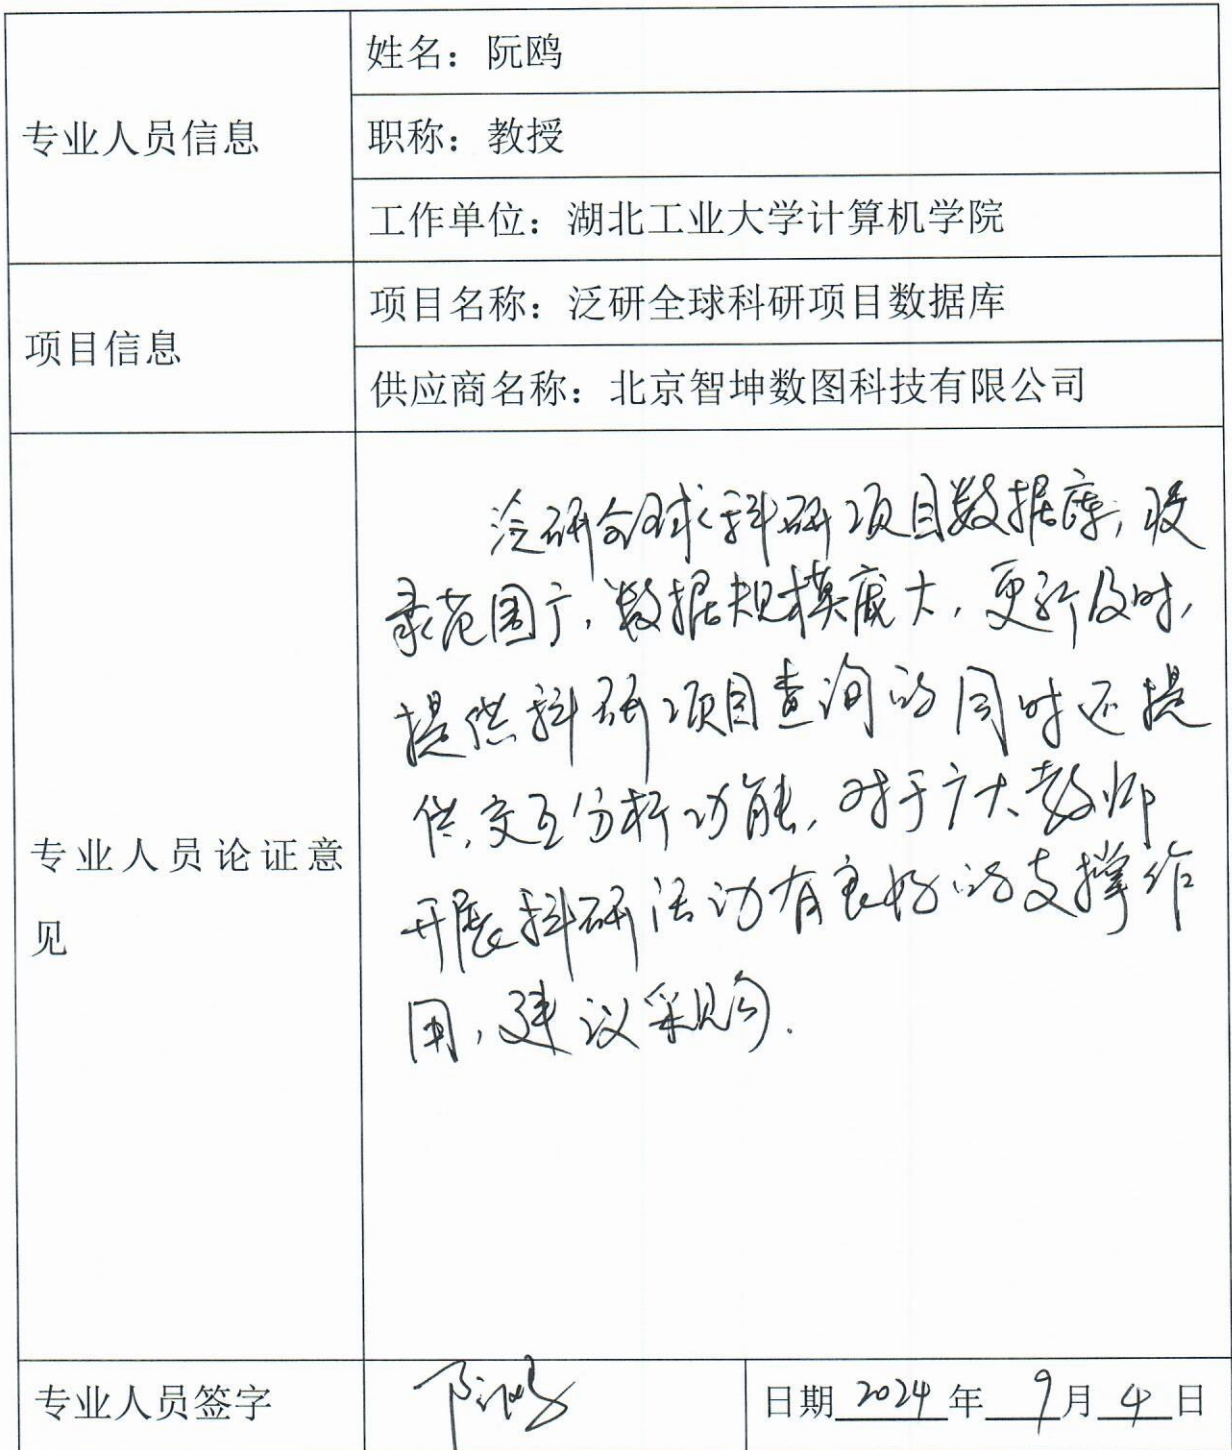 专业人员信息
姓名：阮鸥
职称：教授
工作单位：湖北工业大学计算机学院
项目信息
项目名称：泛研全球科研项目数据库
供应商名称：北京智坤数图科技有限公司
专业人员论证意
见
泛研全球科研项目数据库，收
录范围广，数据规模庞大，更新及时，
提供科研项目查询的同时还提
供交互分析功能，对于广大教师
开展科研活动有良好的支撑作
用，建议采购.
专业人员签字
阮鸥
日期 2024 年 9 月 4 日